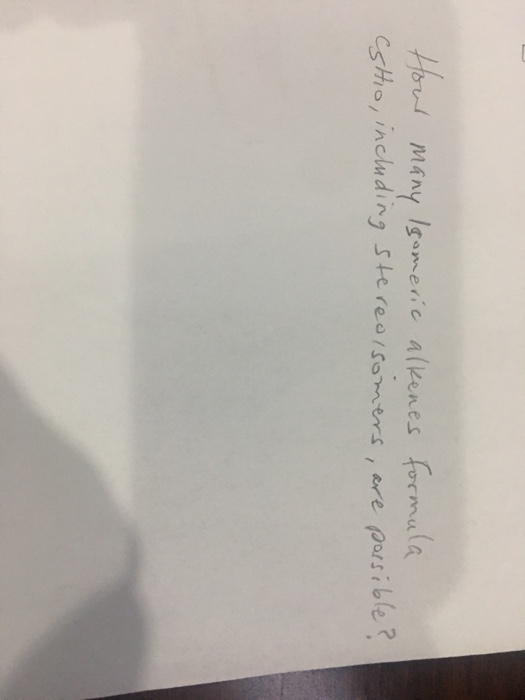 How many Isomeric alkenes formula
C5H10, including stereoisomers, are possible?